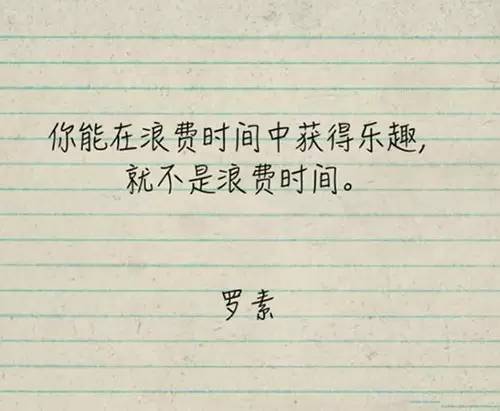 你能在浪费时间中获得乐趣,
就不是浪费时间。
罗素